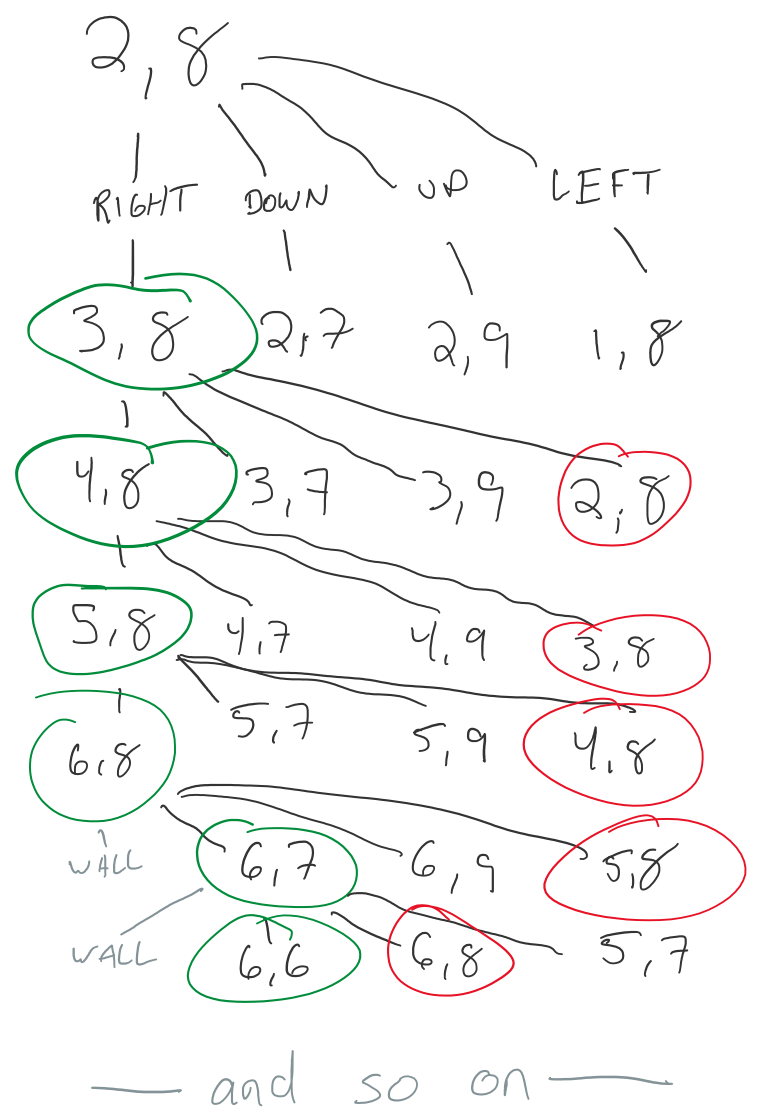 2,8
RIGHT DOWN UP LEFT
3,8 2,7 2,9 1,8
4,8 3,7 3,9 2,8
5,8 4,7 4,9 3,8
6,8 5,7 5,9 4,8
WALL 6,7 6,9 5,8
WALL 6,6 6,8 5,7
and so on